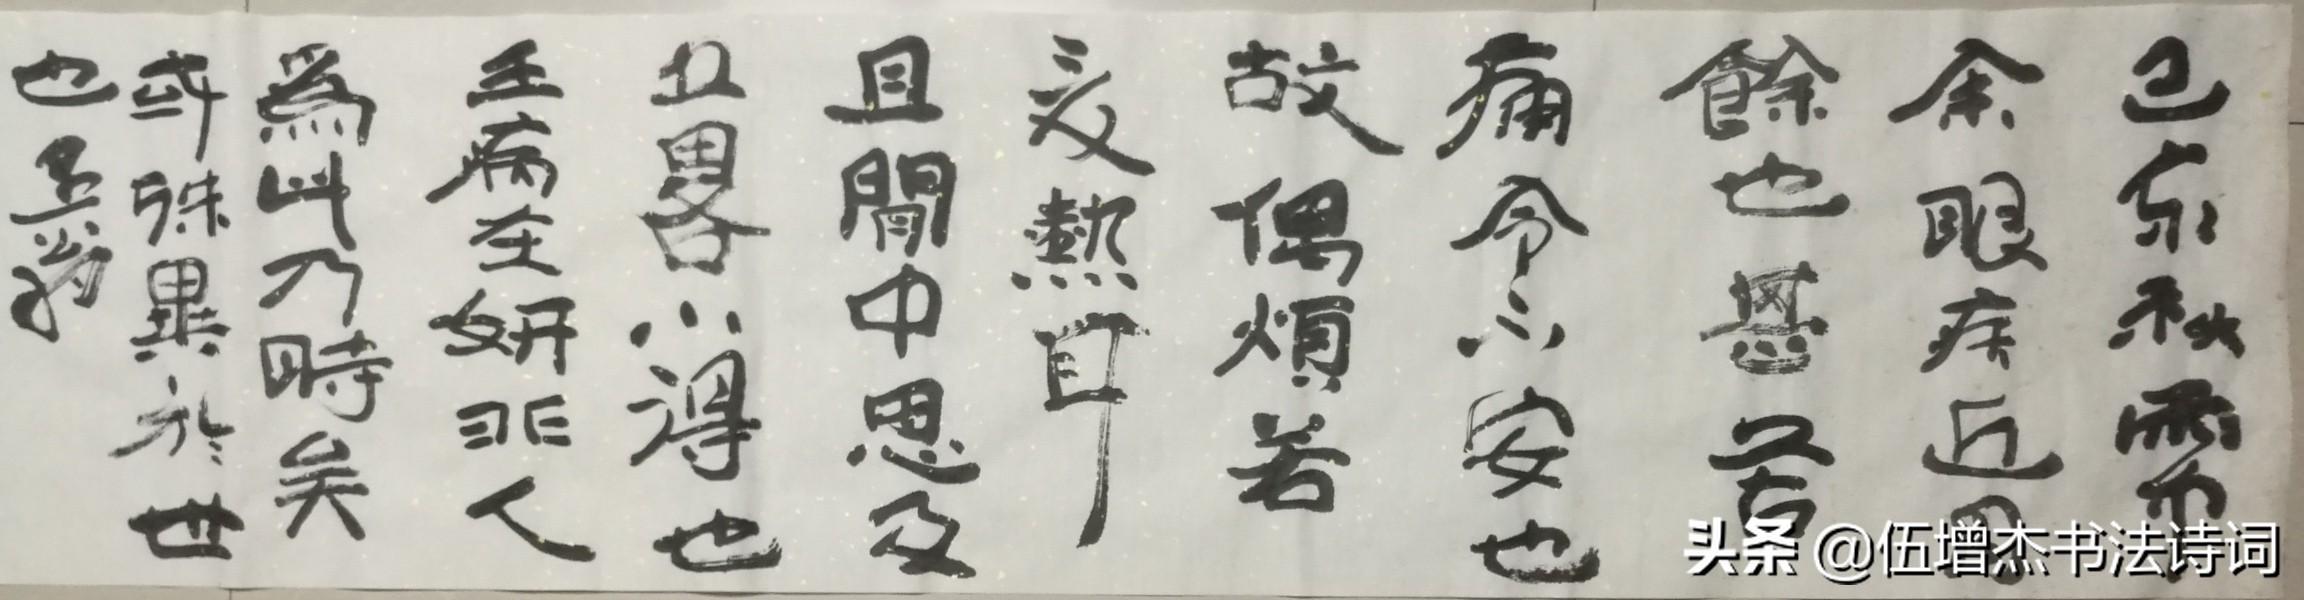 已亥秋霁
余眼疾近四
餘也甚苦
痛令不安也
故偶煩若
受熱耳
且間中思及
丑畧小得也
壬病在妍非人
為此乃時矣
或殊異於世
也
头条 @伍增杰书法诗词